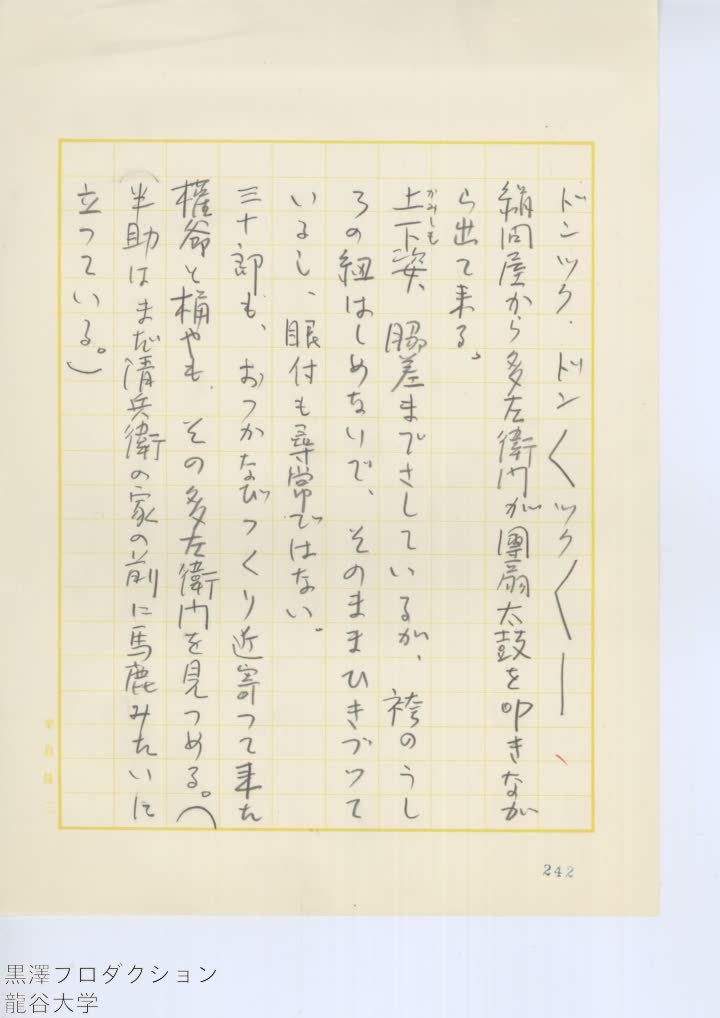 ドンツク・ドン〱ツク〱ー
絹問屋から多左衛門が團扇太鼓を叩きなが
ら出て来る。
上下姿、脇差までさしているが、袴のうし
かみしも
ろの紐はしめないで、そのままひきづつて
いるし、眼付も尋常ではない。
三十郎も、おつかなびつくり近寄つて来た
権爺と桶やも、その多左衛門を見つめる。(
半助はまだ清兵衛の家の前に馬鹿みたいに
立つている。)
242
黒澤プロダクション
龍谷大学